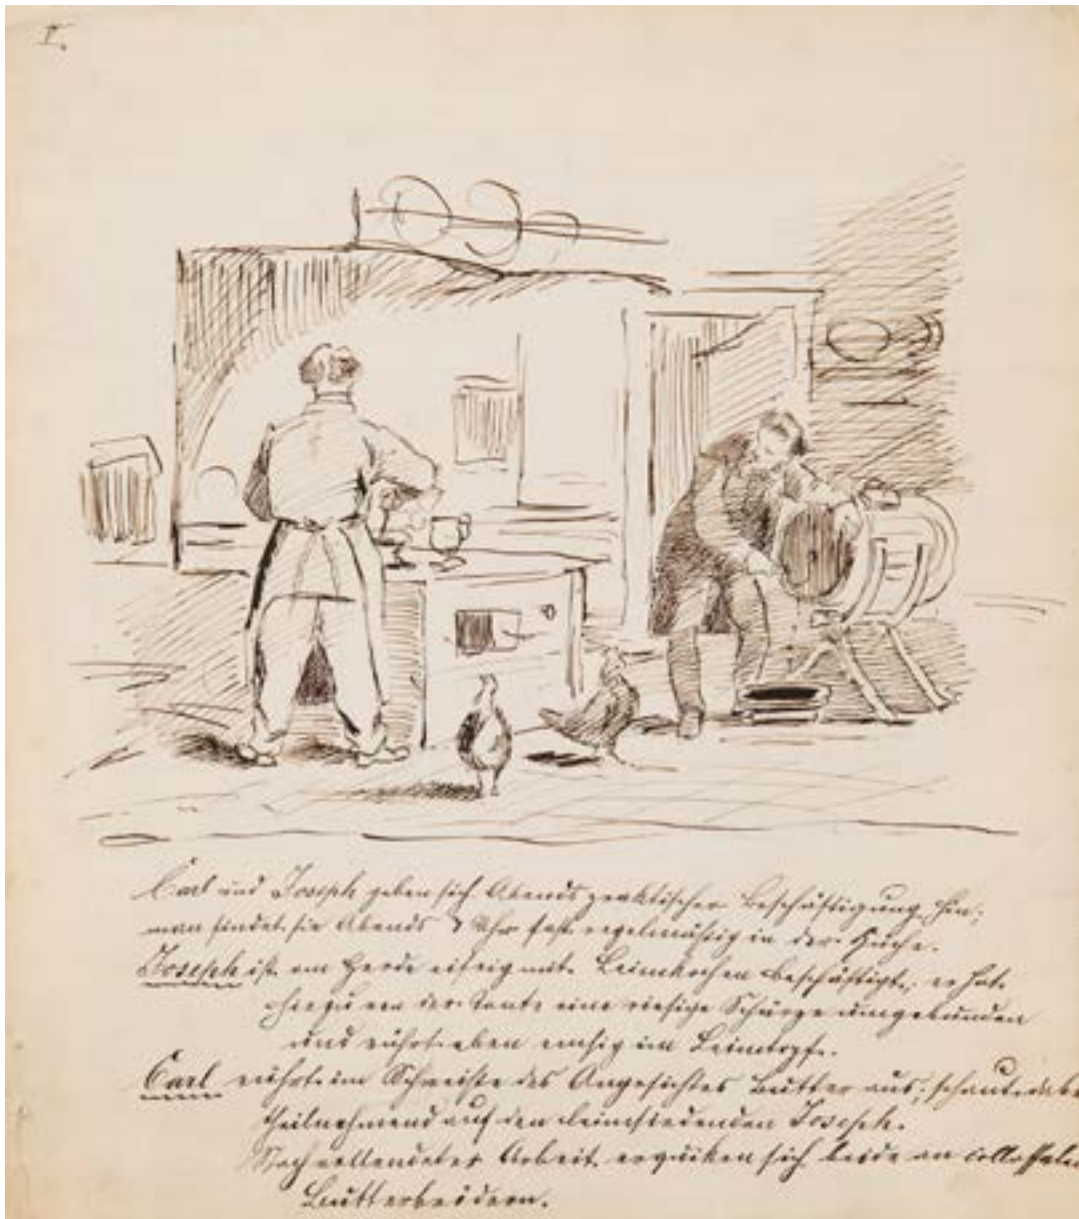 I.
Carl und Joseph geben sich Abends praktischer Beschäftigung hin;
man findet sie Abends Uhr fast regelmäßig in der Küche.
Joseph ist am Herde eifrig mit Leimkochen beschäftigt, er hat
hiezu von der Tante eine riesige Schürze umgebunden
und rührt eben emsig im Leimtopfe.
Carl rührt im Schweiße des Angesichtes Butter aus; schaut dabei
theilnehmend auf den leimsiedenden Joseph.
Nach vollendeter Arbeit erquiken sich beide an
Butterbrödern.